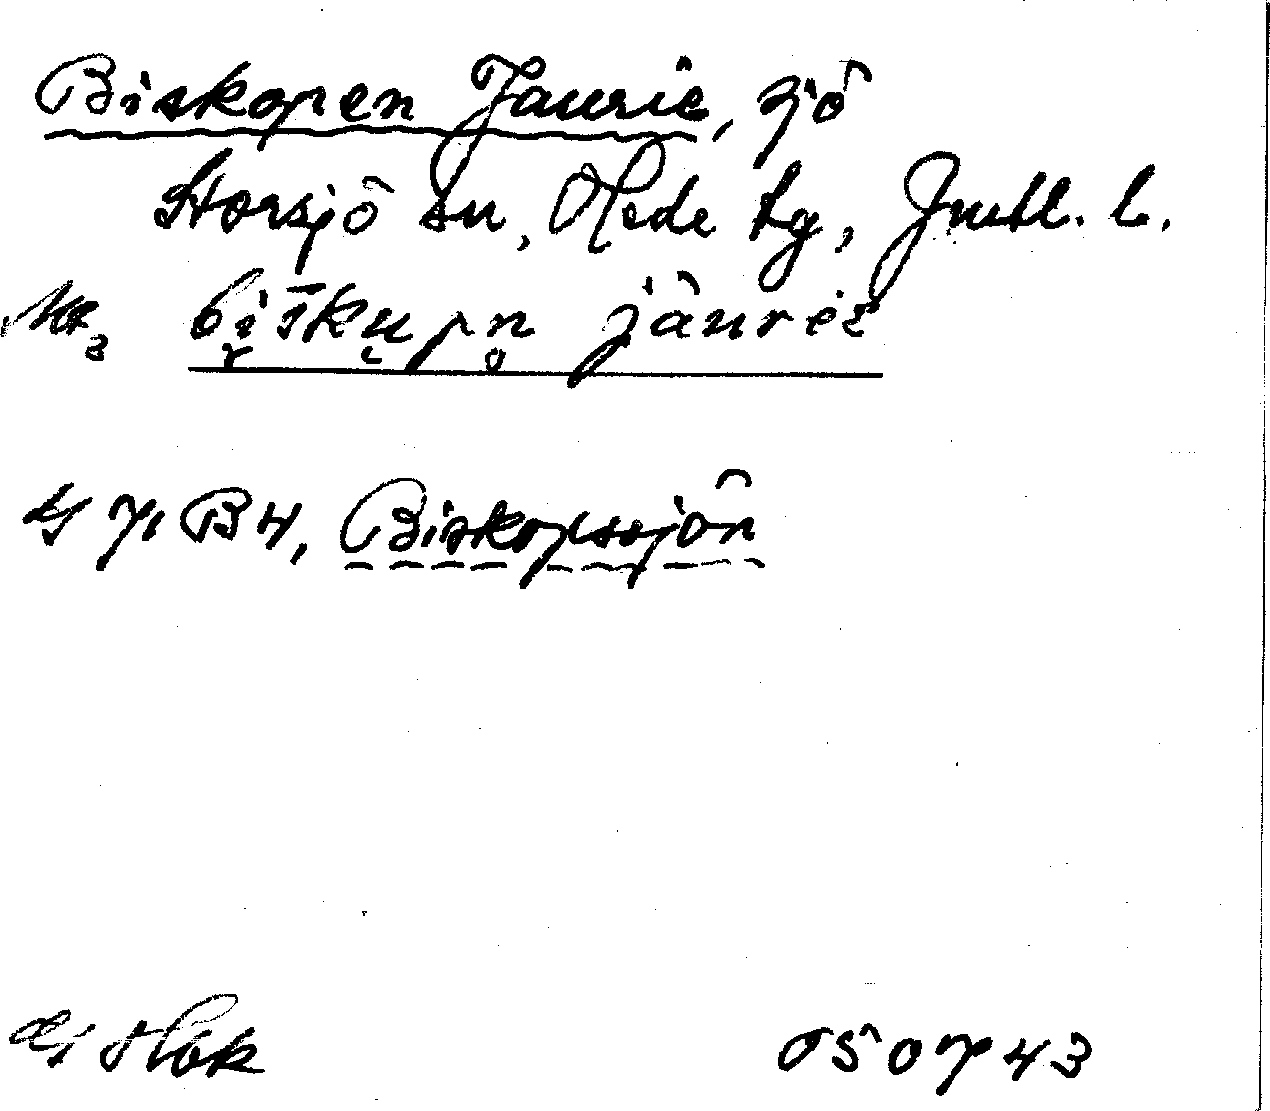 Biskopen Jaurie, sjö
Storsjö sn, Hede tg, Jmtl. l.
biskupn jaurie
G 7, B 4, Biskopssjön
050743